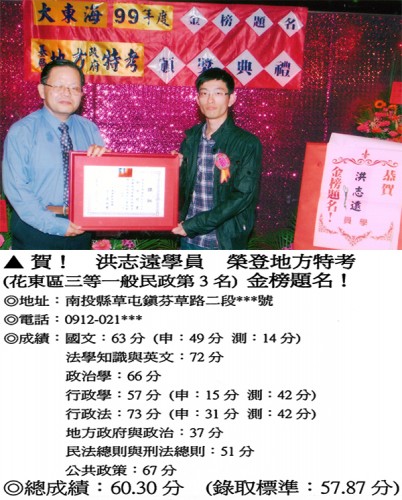 大東海 99年度 金榜題名
基層 地方政府特考 頒獎典禮
恭賀
洪志遠 學員
金榜題名！
▲賀！ 洪志遠學員 榮登地方特考
(花東區三等一般民政第3名) 金榜題名！
◎地址：南投縣草屯鎮芬草路二段***號
◎電話：0912-021***
◎成績：國文：63分 (申：49分 測：14分)
法學知識與英文：72分
政治學：66分
行政學：57分 (申：15分 測：42分)
行政法：73分 (申：31分 測：42分)
地方政府與政治：37分
民法總則與刑法總則：51分
公共政策：67分
◎總成績：60.30分 (錄取標準：57.87分)